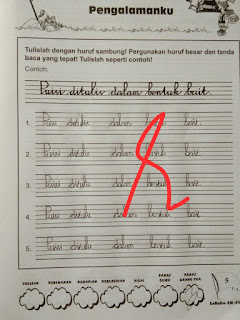 Pengalamanku
Tulislah dengan huruf sambung! Pergunakan huruf besar dan tanda
baca yang tepat! Tulislah seperti contoh!
Contoh:
Puisi ditulis dalam bentuk bait.
1. Puisi ditulis dalam bentuk bait.
2. Puisi ditulis dalam bentuk bait.
3. Puisi ditulis dalam bentuk bait.
4. Puisi ditulis dalam bentuk bait.
5. Puisi ditulis dalam bentuk bait.
TULISAN KEBENARAN KERAPIAN KEBERSIHAN NILAI PARAF GURU PARAF ORANG TUA
5